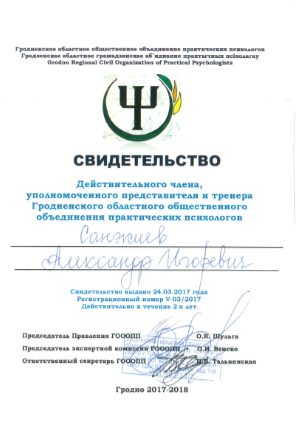 Гродненское областное общественное объединение практических психологов
Гродзенскае абласное грамадзянскае аб'яднанне практычных псіхолагаў
Grodno Regional Civil Organization of Practical Psychologists
СВИДЕТЕЛЬСТВО
Действительного члена,
уполномоченного представителя и тренера
Гродненского областного общественного
объединения практических психологов
Санжиев
Александр Игоревич
Свидетельство выдано 24.03.2017 года
Регистрационный номер V-03/2017
Действительно в течение 2-х лет
Председатель Правления ГОООПП О.К. Шульга
Председатель экспертной комиссии ГОООПП О.И. Венско
Ответственный секретарь ГОООПП Тальвинская
Гродно 2017-2018